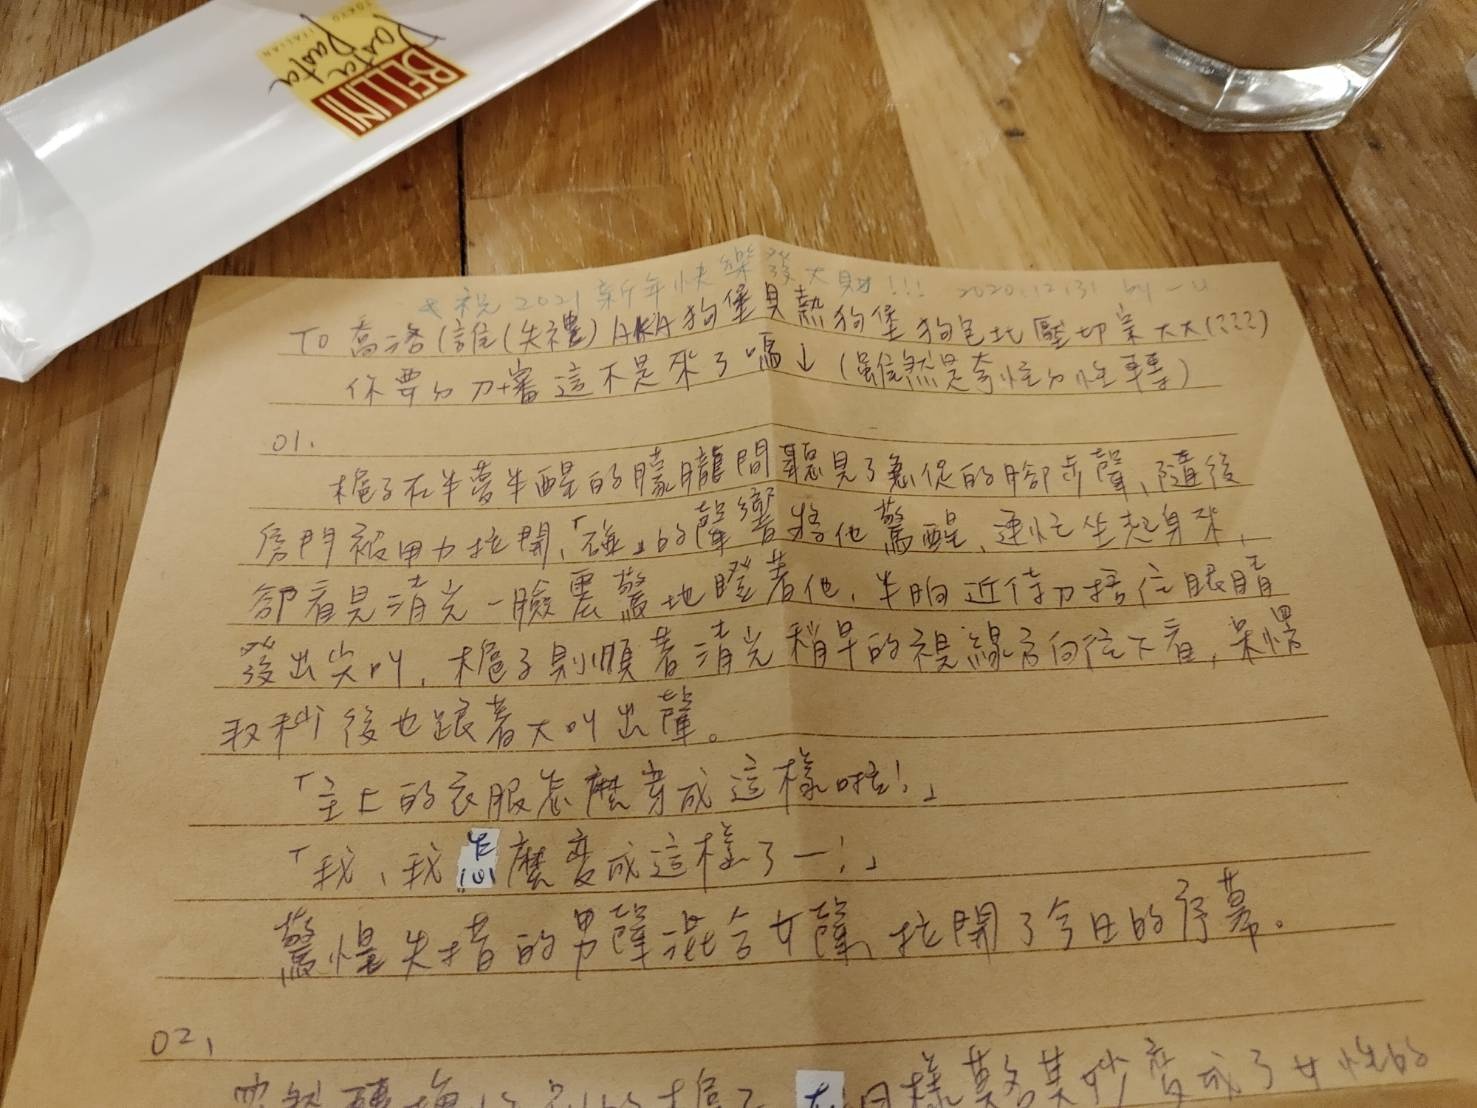 Pasta
Pasta
TOKYO
ITALIAN
BELLINI
祝2021新年快樂發大財!!! 2020.12.31 by 一u
TO 喬洛(誰(失禮) AKA狗堡具熱狗堡狗包北壓切業大大(???)
你要的刀審這不是來了嗎↓(雖然是夸怪的性轉)
01.
樁子在半夢半醒的朦朧間聽見了急促的腳步聲、隨後
房門被用力拉開,「碰」的聲響將他驚醒、連忙坐起身來,
卻看見清光一臉震驚地瞪著他,半晌近侍刀摀住眼睛
發出尖叫,樁子則順著清光稍早的視線方向往下看,呆愣
取秒後也跟著大叫出聲。
「主上的衣服怎麼穿成這樣啦!」
「我、我怎麼變成這樣了—!」
驚惶失措的男聲混合女聲、拉開了今日的序幕。
02,
樣莫名其妙變成了女性的